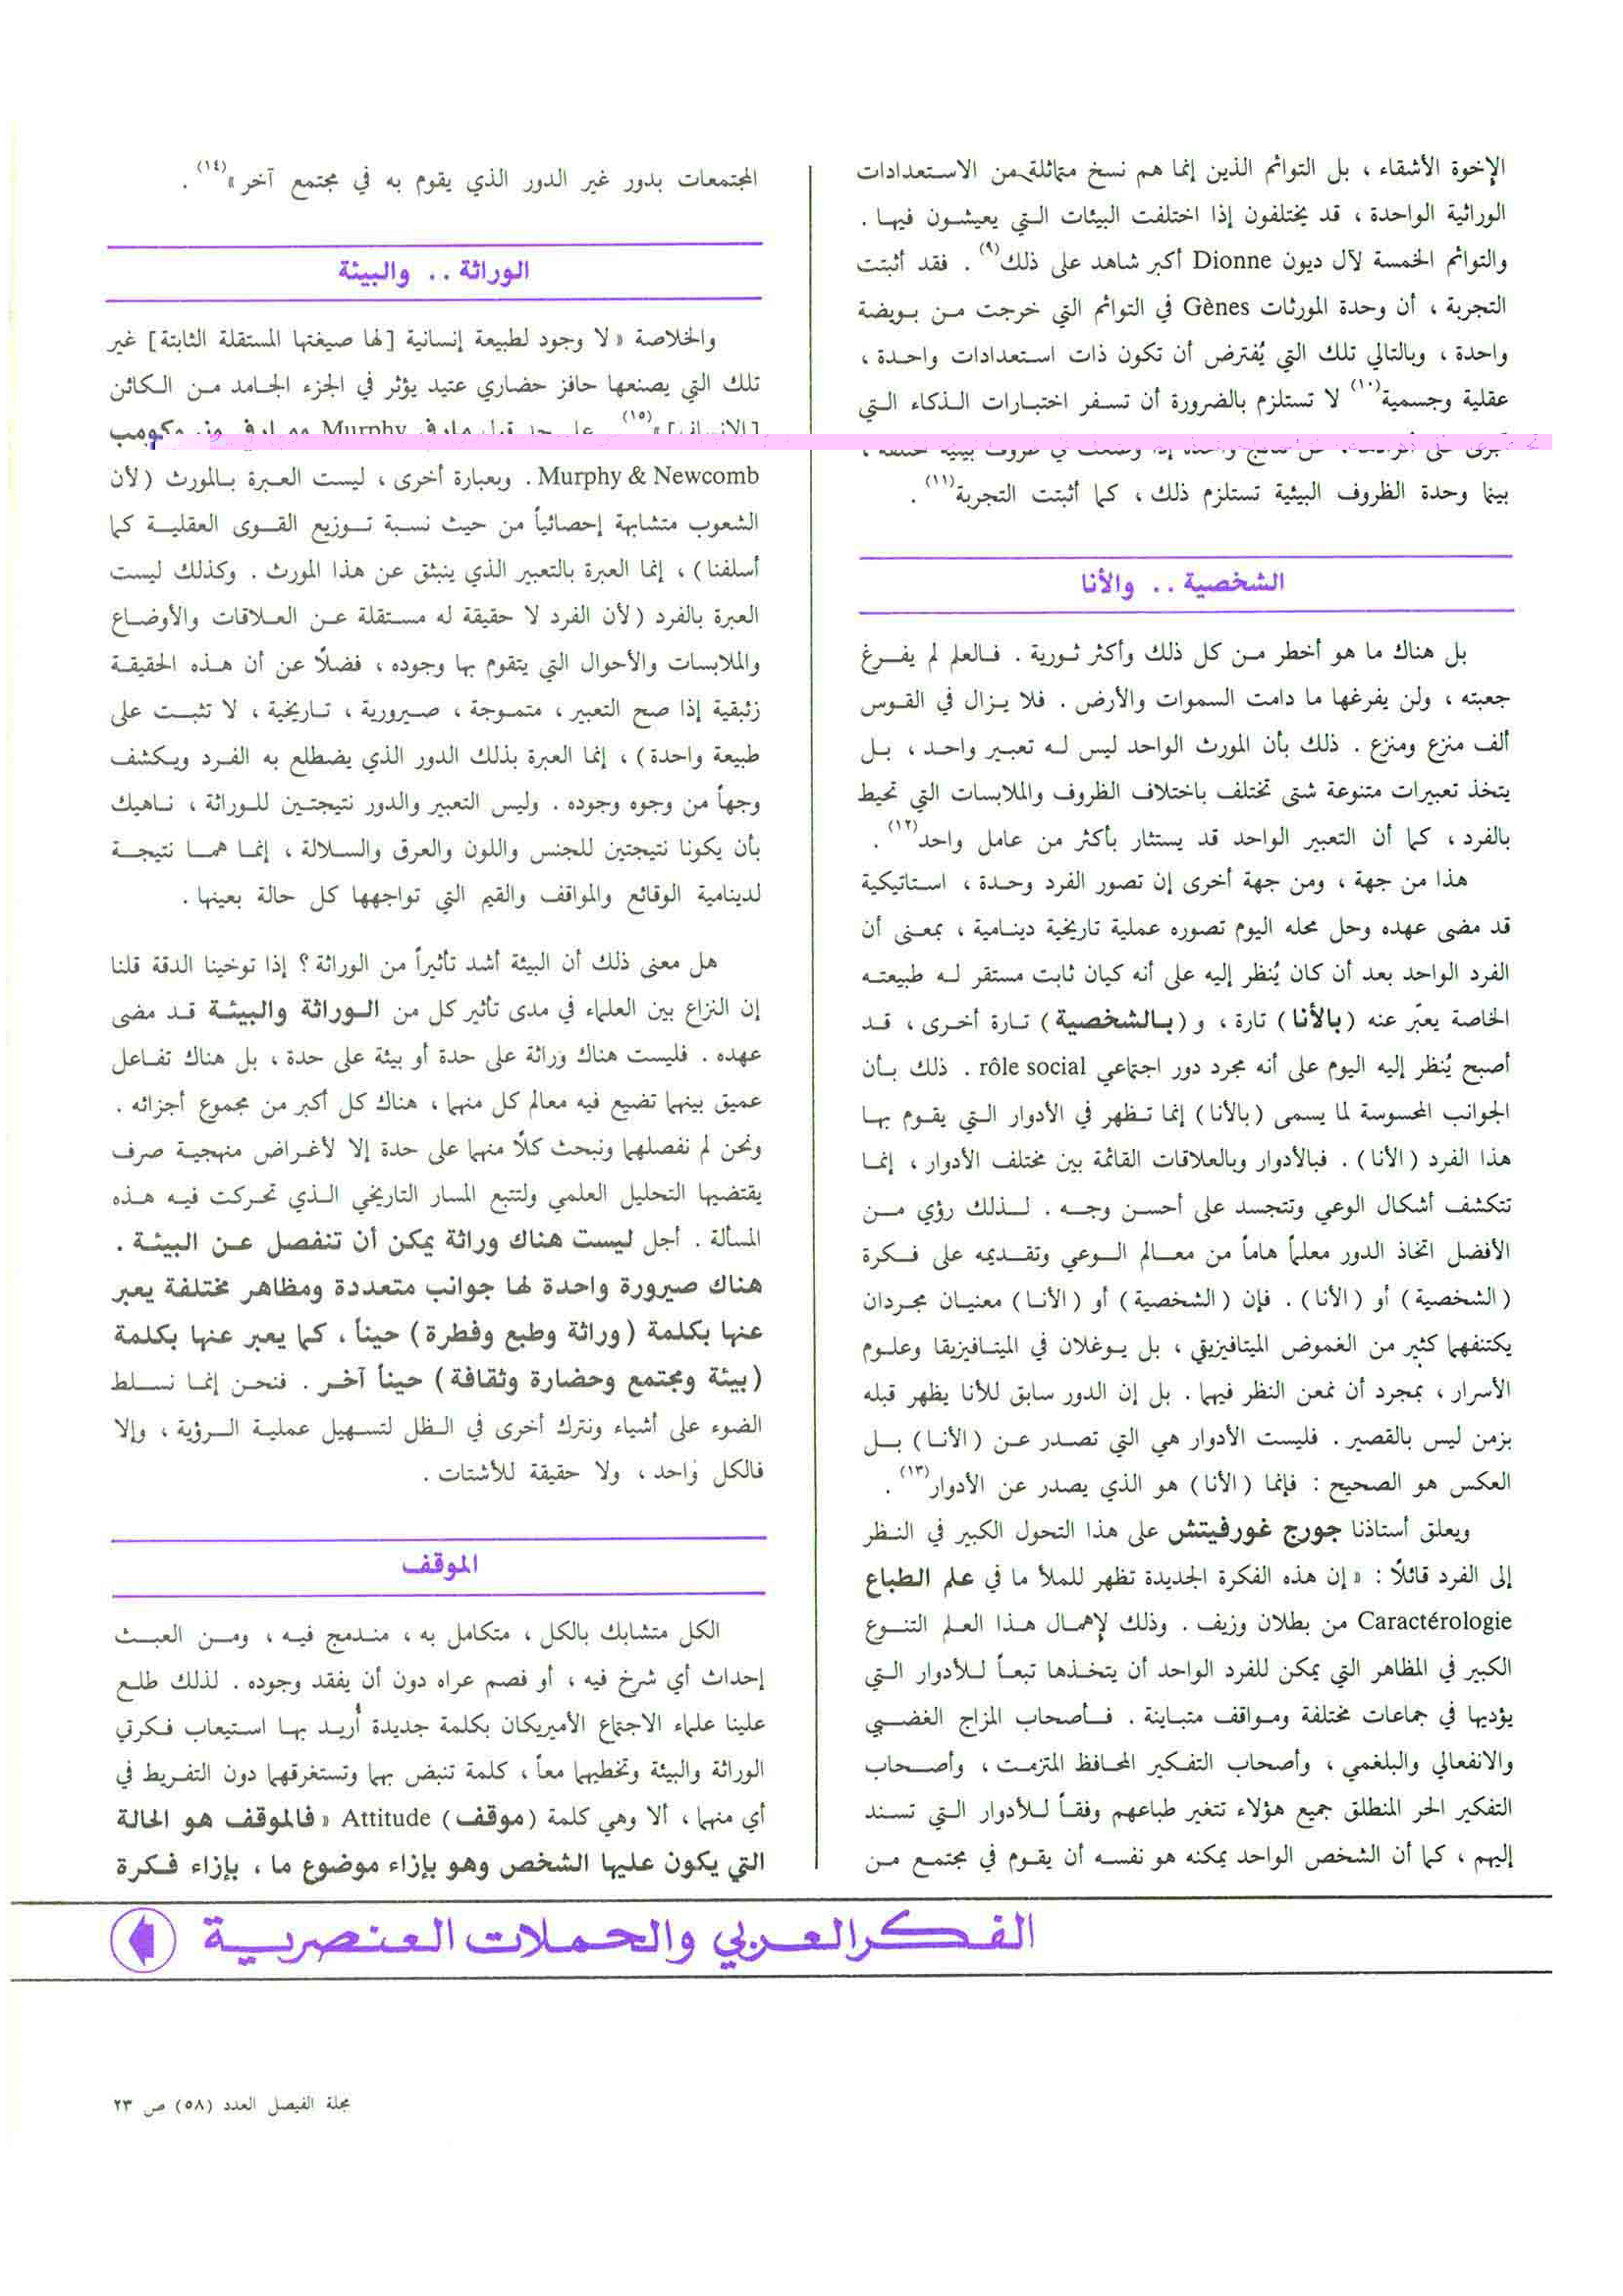 الإخوة الأشقاء ، بل التوائم الذين إنما هم نسخ متماثلة من الاستعدادات
الوراثية الواحدة ، قد يختلفون إذا اختلفت البيئات التي يعيشون فيها .
والتوائم الخمسة لآل ديون Dionne أكبر شاهد على ذلك(٩) . فقد أثبتت
التجربة ، أن وحدة المورثات Gènes في التوائم التي خرجت من بويضة
واحدة ، وبالتالي تلك التي يُفترض أن تكون ذات استعدادات واحدة ،
عقلية وجسمية(١٠) لا تستلزم بالضرورة أن تسفر اختبارات الذكاء التي
بينما وحدة الظروف البيئية تستلزم ذلك ، كما أثبتت التجربة(١١) .
الشخصية . . والأنا
بل هناك ما هو أخطر من كل ذلك وأكثر ثورية . فالعلم لم يفرغ
جعبته ، ولن يفرغها ما دامت السموات والأرض . فلا يزال في القوس
ألف منزع ومنزع . ذلك بأن المورث الواحد ليس له تعبير واحد ، بل
يتخذ تعبيرات متنوعة شتى تختلف باختلاف الظروف والملابسات التي تحيط
بالفرد ، كما أن التعبير الواحد قد يستثار بأكثر من عامل واحد(١٢) .
هذا من جهة ، ومن جهة أخرى إن تصور الفرد وحدة ، استاتيكية
قد مضى عهده وحل محله اليوم تصوره عملية تاريخية دينامية ، بمعنى أن
الفرد الواحد بعد أن كان يُنظر إليه على أنه كيان ثابت مستقر له طبيعته
الخاصة يعبّر عنه (بالأنا) تارة ، و (بالشخصية) تارة أخرى ، قد
أصبح يُنظر إليه اليوم على أنه مجرد دور اجتماعي rôle social . ذلك بأن
الجوانب المحسوسة لما يسمى (بالأنا) إنما تظهر في الأدوار التي يقوم بها
هذا الفرد (الأنا) . فبالأدوار وبالعلاقات القائمة بين مختلف الأدوار ، إنما
تتكشف أشكال الوعي وتتجسد على أحسن وجه . لذلك رؤي من
الأفضل اتخاذ الدور معلماً هاماً من معالم الوعي وتقديمه على فكرة
(الشخصية) أو (الأنا) . فإن (الشخصية) أو (الأنا) معنيان مجردان
يكتنفهما كثير من الغموض الميتافيزيقي ، بل يوغلان في الميتافيزيقا وعلوم
الأسرار ، بمجرد أن نمعن النظر فيهما . بل إن الدور سابق للأنا يظهر قبله
بزمن ليس بالقصير . فليست الأدوار هي التي تصدر عن (الأنا) بل
العكس هو الصحيح : فإنما (الأنا) هو الذي يصدر عن الأدوار(١٣) .
ويعلق أستاذنا جورج غورفيتش على هذا التحول الكبير في النظر
إلى الفرد قائلاً : « إن هذه الفكرة الجديدة تظهر للملأ ما في علم الطباع
Caractérologie من بطلان وزيف . وذلك لإهمال هذا العلم التنوع
الكبير في المظاهر التي يمكن للفرد الواحد أن يتخذها تبعاً للأدوار التي
يؤديها في جماعات مختلفة ومواقف متباينة . فأصحاب المزاج الغضبي
والانفعالي والبلغمي ، وأصحاب التفكير المحافظ المتزمت ، وأصحاب
التفكير الحر المنطلق جميع هؤلاء تتغير طباعهم وفقاً للأدوار التي تسند
إليهم ، كما أن الشخص الواحد يمكنه هو نفسه أن يقوم في مجتمع من
المجتمعات بدور غير الدور الذي يقوم به في مجتمع آخر »(١٤) .
الوراثة . . والبيئة
والخلاصة « لا وجود لطبيعة إنسانية [لها صيغتها المستقلة الثابتة] غير
تلك التي يصنعها حافز حضاري عتيد يؤثر في الجزء الجامد من الكائن
[الإنساني] »(١٥) على حد قول مارفي Murphy ومارفي ونيوكومب
Murphy & Newcomb . وبعبارة أخرى ، ليست العبرة بالمورث (لأن
الشعوب متشابهة إحصائياً من حيث نسبة توزيع القوى العقلية كما
أسلفنا) ، إنما العبرة بالتعبير الذي ينبثق عن هذا المورث . وكذلك ليست
العبرة بالفرد (لأن الفرد لا حقيقة له مستقلة عن العلاقات والأوضاع
والملابسات والأحوال التي يتقوم بها وجوده ، فضلاً عن أن هذه الحقيقة
زئبقية إذا صح التعبير ، متموجة ، صيرورية ، تاريخية ، لا تثبت على
طبيعة واحدة) ، إنما العبرة بذلك الدور الذي يضطلع به الفرد ويكشف
وجهاً من وجوه وجوده . وليس التعبير والدور نتيجتين للوراثة ، ناهيك
بأن يكونا نتيجتين للجنس واللون والعرق والسلالة ، إنما هما نتيجة
لدينامية الوقائع والمواقف والقيم التي تواجهها كل حالة بعينها .
هل معنى ذلك أن البيئة أشد تأثيراً من الوراثة ؟ إذا توخينا الدقة قلنا
إن النزاع بين العلماء في مدى تأثير كل من الوراثة والبيئة قد مضى
عهده . فليست هناك وراثة على حدة أو بيئة على حدة ، بل هناك تفاعل
عميق بينهما تضيع فيه معالم كل منهما ، هناك كل أكبر من مجموع أجزائه .
ونحن لم نفصلهما ونبحث كلاً منهما على حدة إلا لأغراض منهجية صرف
يقتضيها التحليل العلمي ولتتبع المسار التاريخي الذي تحركت فيه هذه
المسألة . أجل ليست هناك وراثة يمكن أن تنفصل عن البيئة .
هناك صيرورة واحدة لها جوانب متعددة ومظاهر مختلفة يعبر
عنها بكلمة (وراثة وطبع وفطرة) حيناً ، كما يعبر عنها بكلمة
(بيئة ومجتمع وحضارة وثقافة) حيناً آخر . فنحن إنما نسلط
الضوء على أشياء ونترك أخرى في الظل لتسهيل عملية الرؤية ، وإلا
فالكل واحد ، ولا حقيقة للأشتات .
الموقف
الكل متشابك بالكل ، متكامل به ، مندمج فيه ، ومن العبث
إحداث أي شرخ فيه ، أو فصم عراه دون أن يفقد وجوده . لذلك طلع
علينا علماء الاجتماع الأميريكان بكلمة جديدة أُريد بها استيعاب فكرتي
الوراثة والبيئة وتخطيهما معاً ، كلمة تنبض بهما وتستغرقهما دون التفريط في
أي منهما ، ألا وهي كلمة (موقف) Attitude « فالموقف هو الحالة
التي يكون عليها الشخص وهو بإزاء موضوع ما ، بإزاء فكرة
الفكر العربي والحملات العنصرية
مجلة الفيصل العدد (٥٨) ص ٢٣